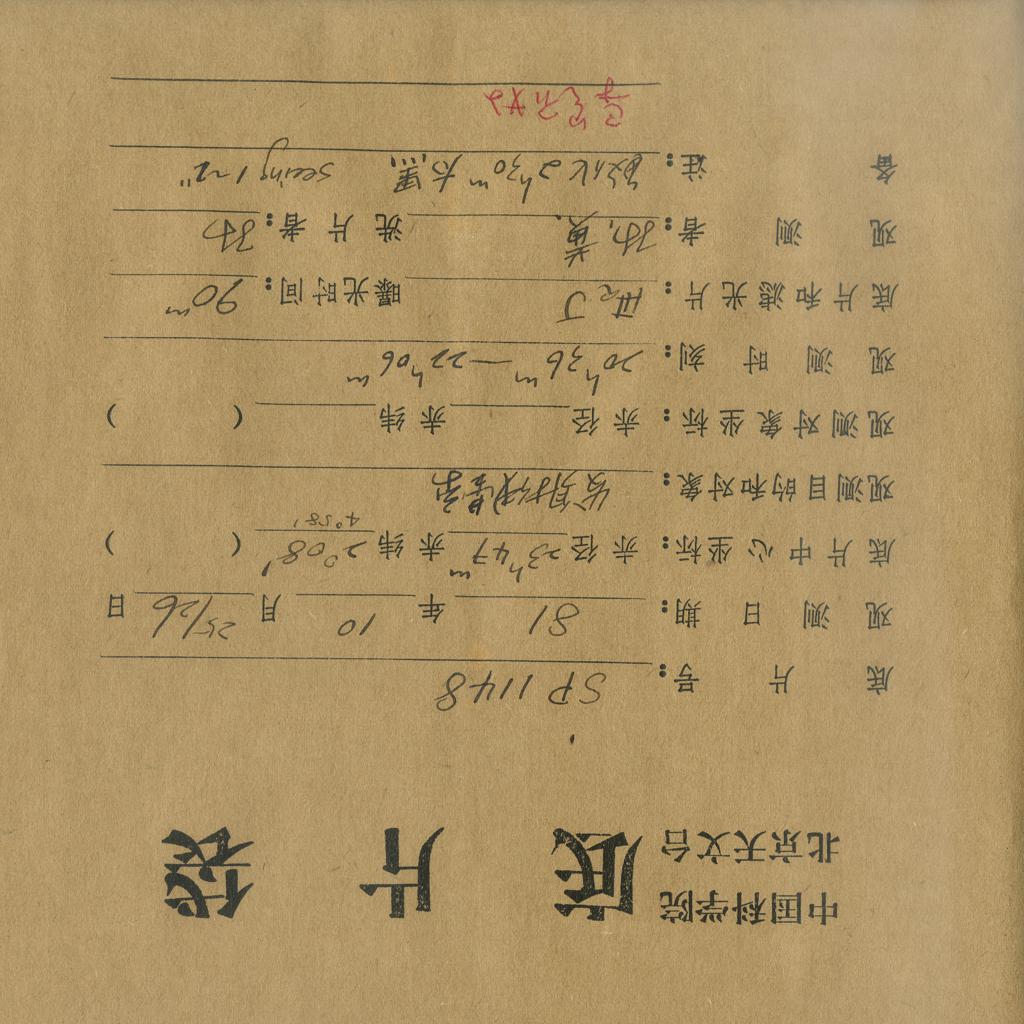 中国科学院
北京天文台
底片袋
底片号: SP 1148
观测日期: 81年10月25/26日
底片中心坐标: 赤径23h47m赤纬2°08′( )
4°58′
观测目的和对象:
观测对象坐标: 赤径 赤纬 ( )
观测时刻: 20h36m—22h06m
底片和滤光片: ⅢaJ 曝光时间: 90m
观测者: 孙,黄 洗片者: 孙
备注: 敏化2h30m 太黑 seeing 1~2″